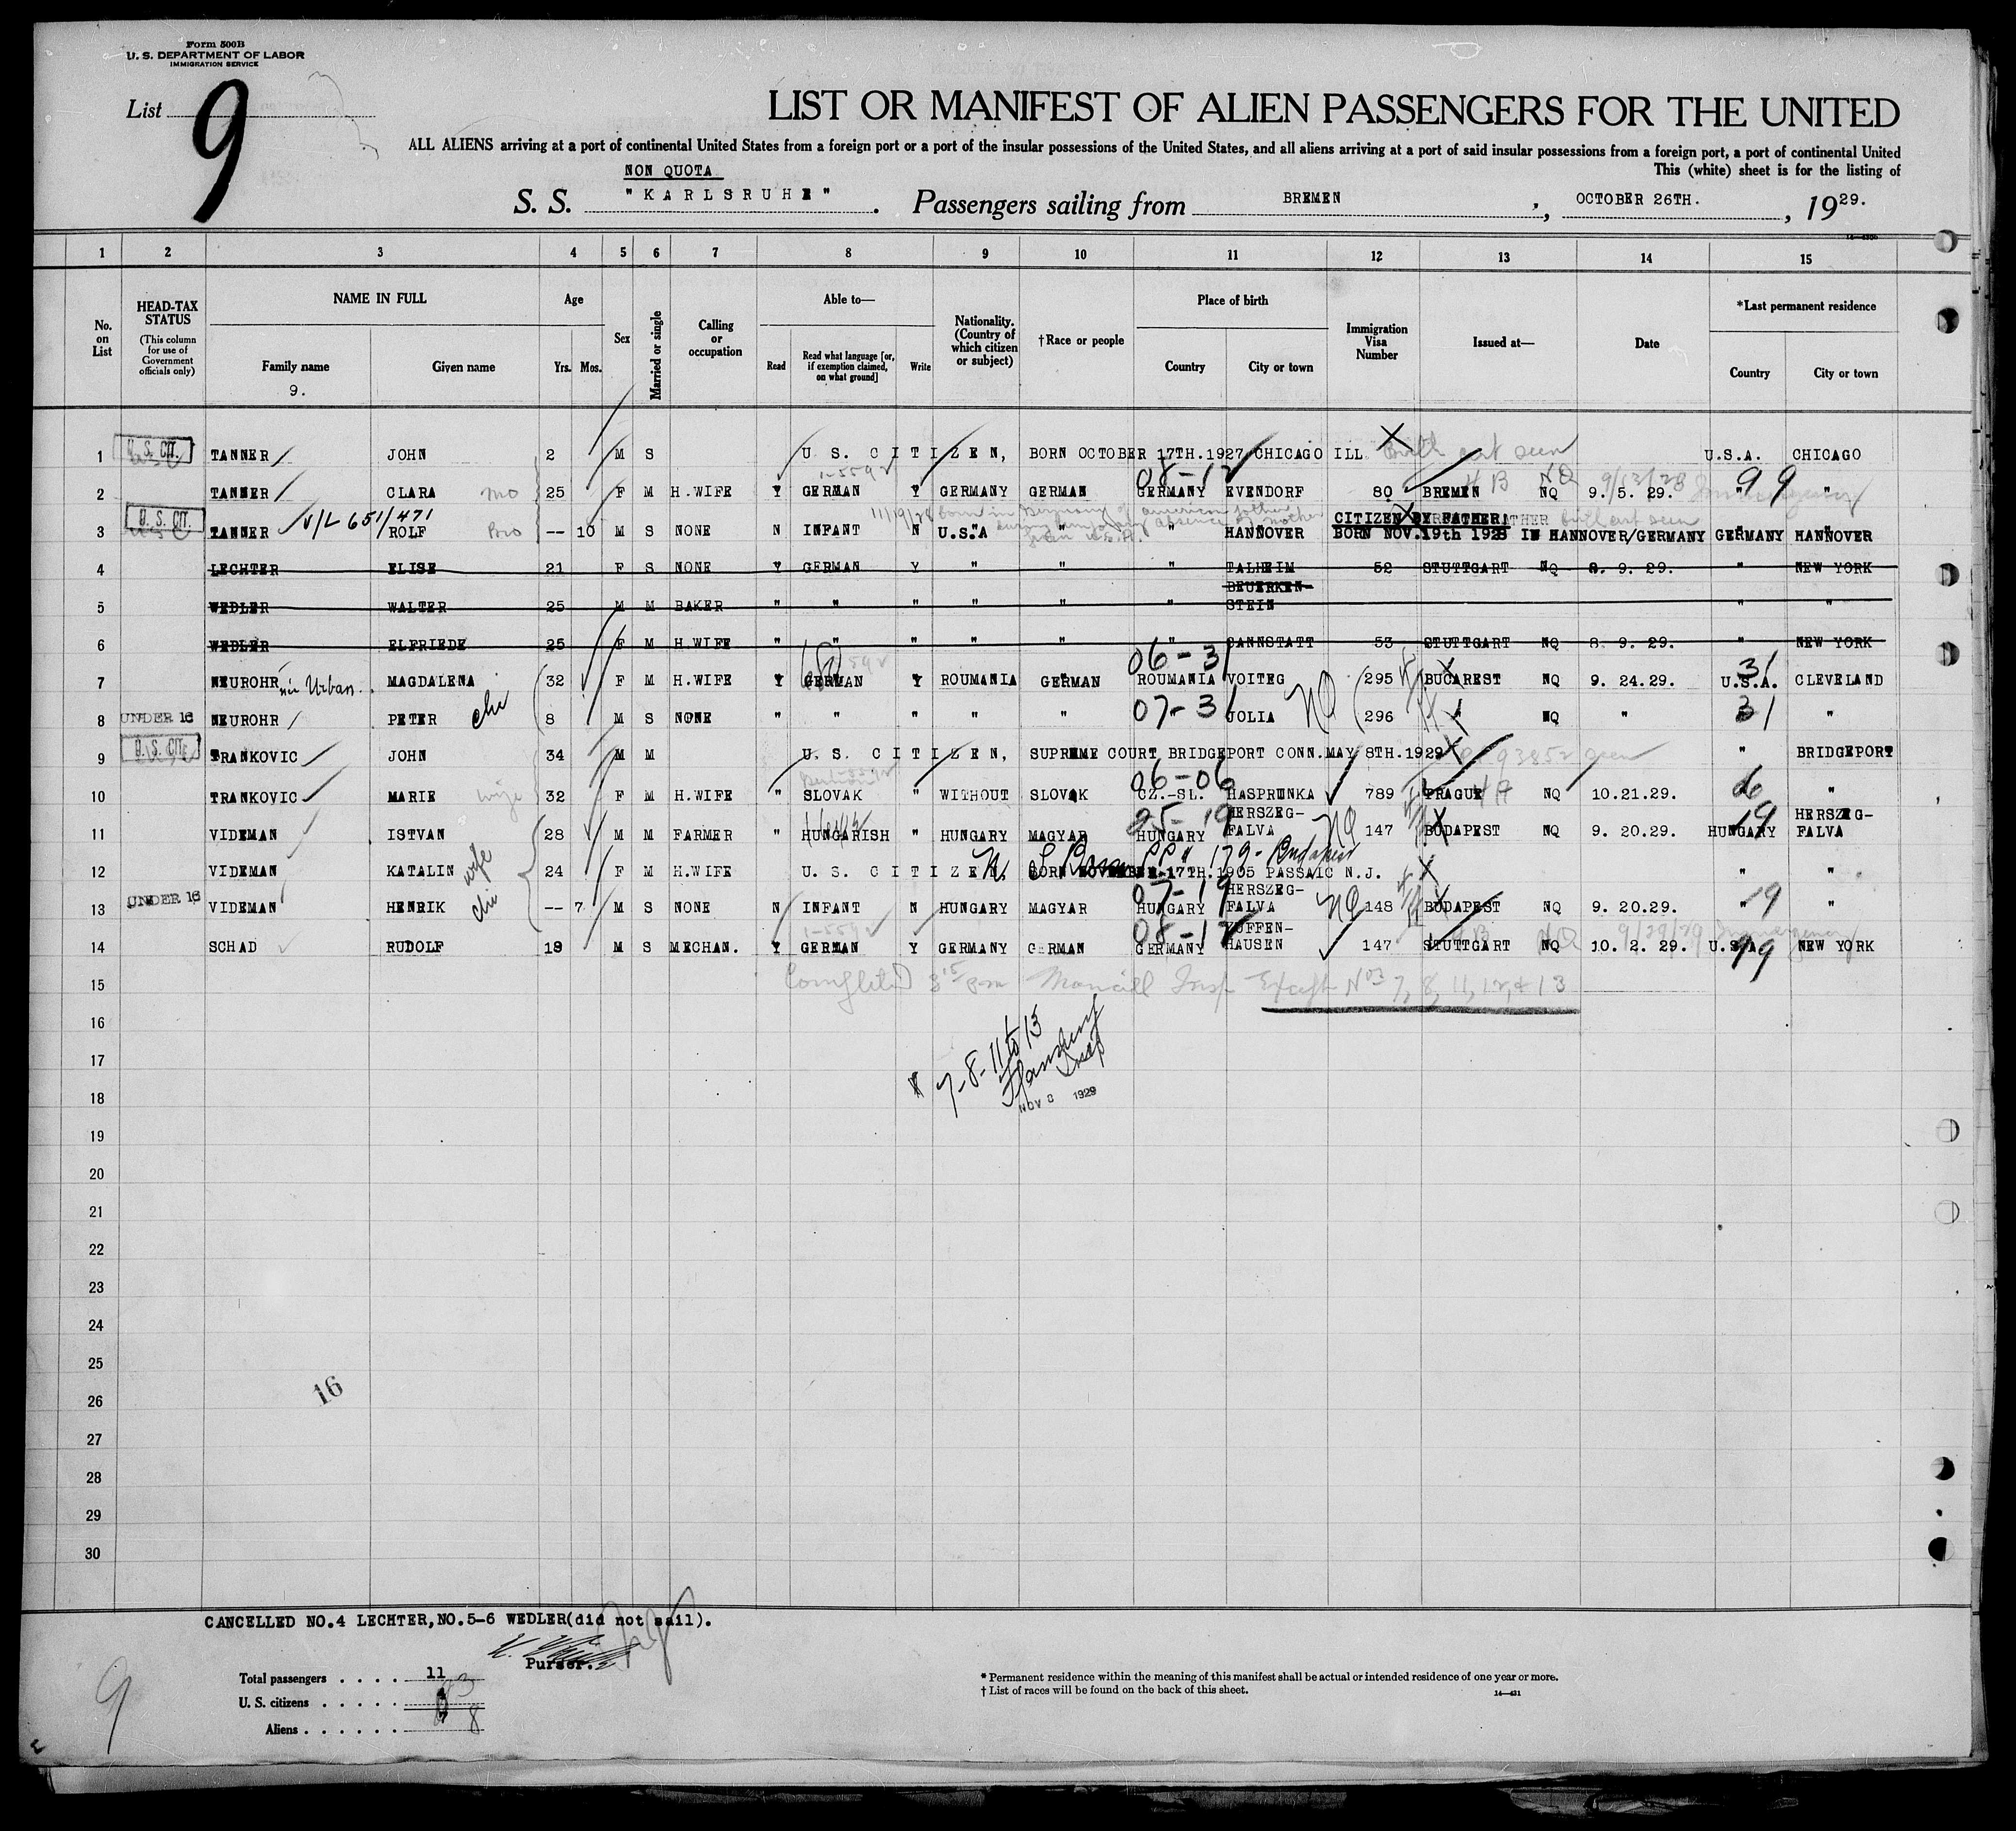 Form 500B
U. S. DEPARTMENT OF LABOR
IMMIGRATION SERVICE
List 9
LIST OR MANIFEST OF ALIEN PASSENGERS FOR THE UNITED
ALL ALIENS arriving at a port of continental United States from a foreign port or a port of the insular possessions of the United States, and all aliens arriving at a port of said insular possessions from a foreign port, a port of continental United
This (white) sheet is for the listing of
NON QUOTA
S. S. "KARLSRUHE". Passengers sailing from BREMEN, OCTOBER 26TH., 1929.
1 2 3 4 5 6 7 8 9 10 11 12 13 14 15
No. on List
HEAD-TAX STATUS (This column for use of Government officials only)
NAME IN FULL
Family name
Given name
9.
Age
Yrs. Mos.
Sex
Married or single
Calling or occupation
Able to—
Read
Read what language [or, if exemption claimed, on what ground]
Write
Nationality. (Country of which citizen or subject)
†Race or people
Place of birth
Country
City or town
Immigration Visa Number
Issued at—
Date
*Last permanent residence
Country
City or town
1 U. S. CIT. TANNER JOHN 2 M S U. S. CITIZEN, BORN OCTOBER 17TH.1927 CHICAGO ILL Birth cert seen U.S.A. CHICAGO
1-5592 08-12
2 TANNER CLARA mo 25 F M H.WIFE Y GERMAN Y GERMANY GERMAN GERMANY EVENDORF 80 BREMEN NQ 9. 5. 29. 99 " "
V/L 651/471
CITIZEN BY FATHER birth cert seen
3 U. S. CIT. TANNER ROLF Bro -- 10 M S NONE N INFANT N U.S.A " " HANNOVER BORN NOV.19th 1928 IN HANNOVER/GERMANY GERMANY HANNOVER
4 LECHTER ELISE 21 F S NONE Y GERMAN Y " " " TALHEIM 52 STUTTGART NQ 8. 9. 29. " NEW YORK
5 WEDLER WALTER 25 M M BAKER " " " " " " BEUERKEN-STEIN " "
6 WEDLER ELFRIEDE 25 F M H.WIFE " " " " " " CANNSTATT 53 STUTTGART NQ 8. 9. 29. " NEW YORK
06-31 31
7 NEUROHR née Urban MAGDALENA 32 F M H.WIFE Y GERMAN Y ROUMANIA GERMAN ROUMANIA VOITEG 295 BUCAREST NQ 9. 24.29. U.S.A. CLEVELAND
8 UNDER 16 NEUROHR PETER chi 8 M S NONE " " " " " 07-31 JOLIA NQ 296 " NQ " 31 "
9 U. S. CIT. TRANKOVIC JOHN 34 M M U. S. CITIZEN, SUPREME COURT BRIDGEPORT CONN.MAY 8TH.1929 93852 seen " BRIDGEPORT
06-06
10 TRANKOVIC MARIE wife 32 F M H.WIFE " SLOVAK " WITHOUT SLOVAK CZ.-SL. HASPRUNKA 789 PRAGUE NQ 10.21.29. 6 "
25-19 19
11 VIDEMAN ISTVAN 28 M M FARMER " HUNGARISH " HUNGARY MAGYAR HUNGARY HERSZEG-FALVA NQ 147 BUDAPEST NQ 9. 20.29. HUNGARY HERSZEG-FALVA
179- Budapest
12 VIDEMAN KATALIN wife 24 F M H.WIFE U. S. CITIZEN, BORN NOVEMBER 17TH.1905 PASSAIC N.J. " "
07-19
13 UNDER 16 VIDEMAN HENRIK chi -- 7 M S NONE N INFANT N HUNGARY MAGYAR HUNGARY HERSZEG-FALVA NQ 148 BUDAPEST NQ 9. 20.29. " 19 "
1-5592 08-12
14 SCHAD RUDOLF 19 M S MECHAN. Y GERMAN Y GERMANY GERMAN GERMANY ZUFFEN-HAUSEN 147 STUTTGART NQ 10. 2. 29. U.S.A. 99 NEW YORK
15 Completed 3 15 pm Insp Except Nos 7, 8, 11, 12, & 13
16
7-8-11 to 13
17
Insp
18
NOV 8 1929
19
20
21
22
23
24
25
26
16
27
28
29
30
CANCELLED NO.4 LECHTER,NO.5-6 WEDLER(did not sail).
Purser.
Total passengers . . . . 11
U. S. citizens . . . . . 3
Aliens . . . . . . 8
9
* Permanent residence within the meaning of this manifest shall be actual or intended residence of one year or more.
† List of races will be found on the back of this sheet.